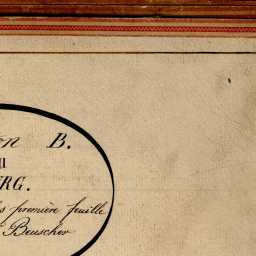 on B.
RG.
première feuille
Beuscher